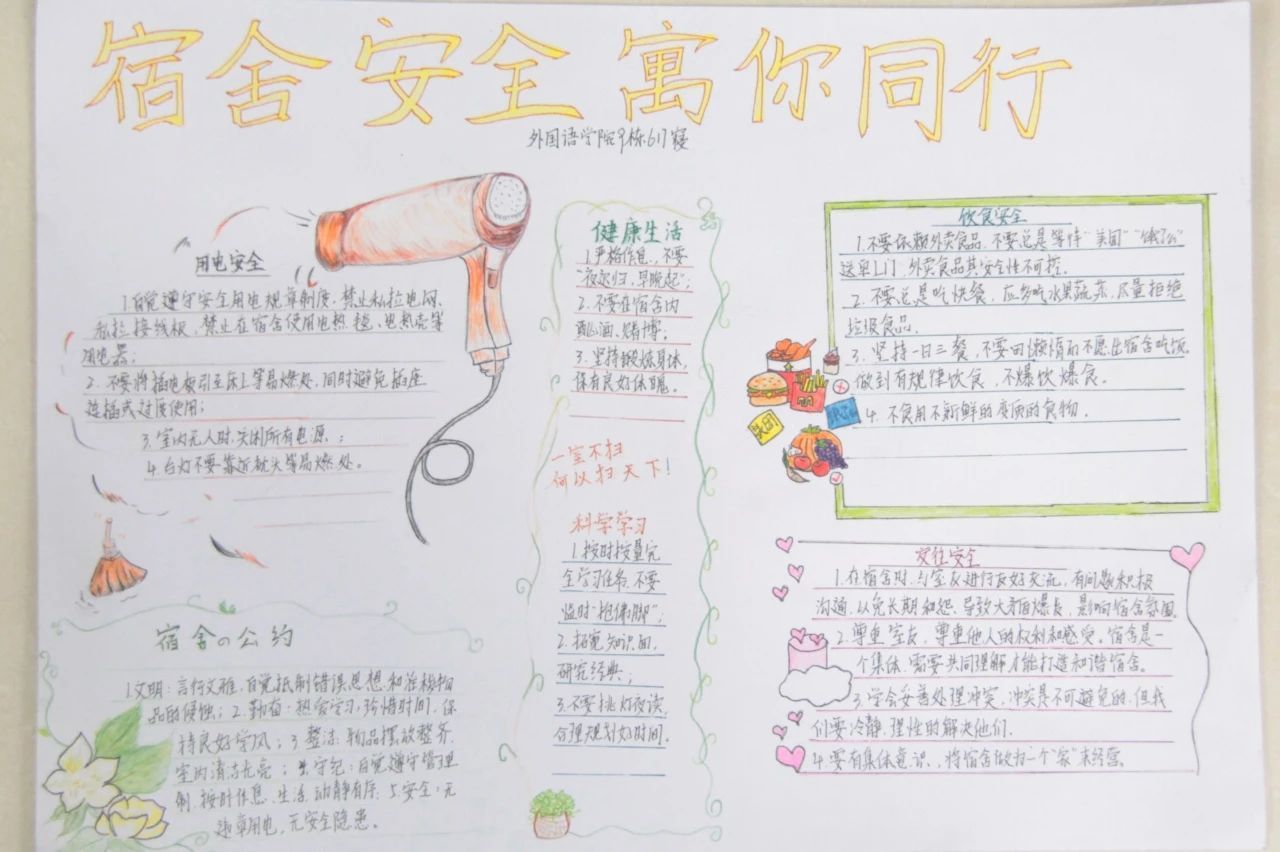 宿舍安全寓你同行
外国语学院9栋617寝
用电安全
1.自觉遵守安全用电规章制度,禁止私拉电网、
私拉接线板,禁止在宿舍使用电热毯、电热壳等
用电器;
2.不要将插电板引至床上等易燃处,同时避免插座
连插或过度使用;
3.室内无人时,关闭所有电源。;
4.台灯不要靠近枕头等易燃处。
宿舍の公约
1.文明:言行文雅,自觉抵制错误思想和
品的侵蚀;2.勤奋:热爱学习,珍惜时间,保
持良好学风;3.整洁:物品摆放整齐,
室内清洁光亮;4.守纪:自觉遵守管理
制,按时作息、生活,动静有序;5.安全:无
违章用电,无安全隐患。
健康生活
1.严格作息,不要
"夜迟归,早晚起";
2.不要在宿舍内
酗酒、赌博;
3.坚持锻炼身体,
保有良好体魄。
一室不扫
何以扫天下!
科学学习
1.按时按量完
全学习任务,不要
临时"抱佛脚";
2.拓宽知识面,
研究经典;
3.不要挑灯夜读,
合理规划好时间。
饮食安全
1.不要依赖外卖食品,不要总是等待"美团""饿了么"
送至上门,外卖食品其安全性不可控。
2.不要总是吃快餐,应多吃水果蔬菜,尽量拒绝
垃圾食品.
3.坚持一日三餐,不要因懒惰而不愿出宿舍吃饭
做到有规律饮食,不爆饮爆食。
4.不食用不新鲜的变质的食物.
美团
交往安全
1.在宿舍时,与室友进行友好交流,有问题积极
沟通,以免长期积怨、导致大矛盾爆长,影响宿舍氛围.
2.尊重室友,尊重他人的权利和感受。宿舍是一
个集体,需要共同理解才能打造和谐宿舍。
3.学会妥善处理冲突,冲突是不可避免的,但我
们要冷静.理性的解决他们.
4.要有集体意识,将宿舍做为一个"家"来经营.